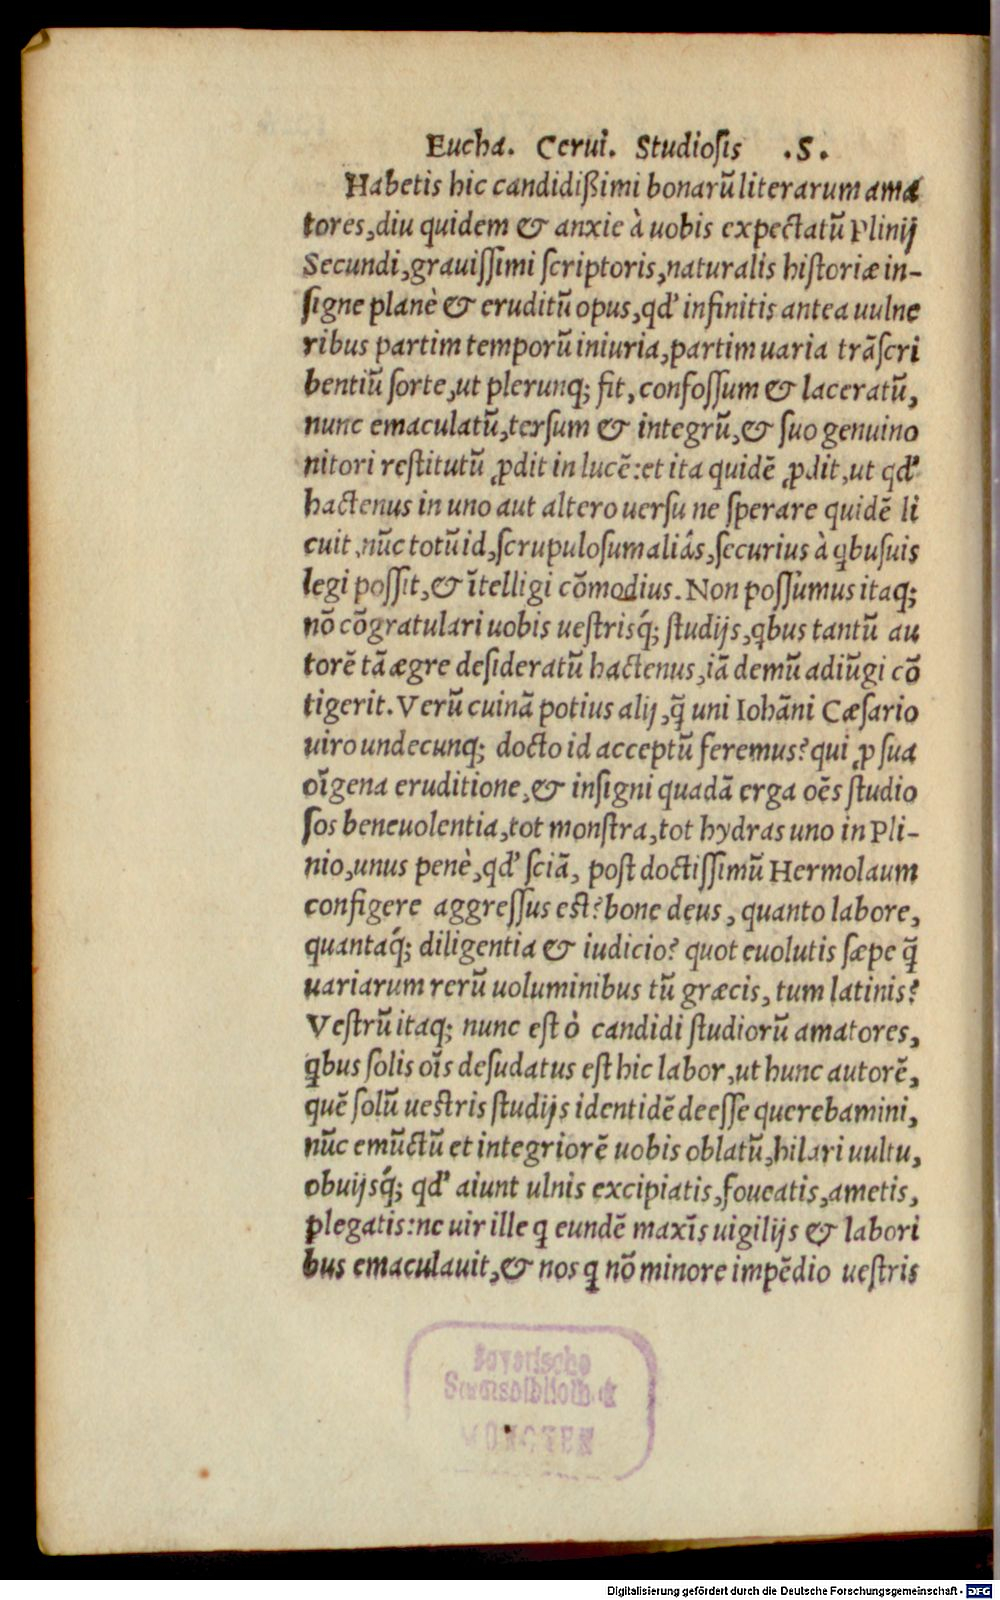 Eucha. Cerui. Studiosis .S.
Habetis hic candidißimi bonarũ literarum ama
tores, diu quidem & anxie à uobis expectatũ Plinij
Secundi, grauissimi scriptoris, naturalis historiæ in-
signe planè & eruditũ opus, qd' infinitis antea uulne
ribus partim temporũ iniuria, partim uaria trãscri
bentiũ sorte, ut plerunq; fit, confossum & laceratũ,
nunc emaculatũ, tersum & integrũ, & suo genuino
nitori restitutũ ꝓdit in lucẽ: et ita quidẽ ꝓdit, ut qd'
hactenus in uno aut altero uersu ne sperare quidẽ li
cuit, nũc totũ id, scrupulosum aliâs, securius à qbusuis
legi possit, & ĩtelligi cõmodius. Non possumus itaq;
nõ cõgratulari uobis uestrisq́; studijs, qbus tantũ au
torẽ tã ægre desideratũ hactenus, iã demũ adiũgi cõ
tigerit. Verũ cuinã potius alij, q̃ uni Iohãni Cæsario
uiro undecunq; docto id acceptũ feremus? qui ꝓ sua
oĩgena eruditione, & insigni quadã erga oẽs studio
sos beneuolentia, tot monstra, tot hydras uno in Pli-
nio, unus penè, qd' sciã, post doctissimũ Hermolaum
configere aggressus est? bone deus, quanto labore,
quantaq́; diligentia & iudicio? quot euolutis sæpe q̃
uariarum rerũ uoluminibus tũ græcis, tum latinis?
Vestrũ itaq; nunc est ò candidi studiorũ amatores,
qbus solis oĩs desudatus est hic labor, ut hunc autorẽ,
quẽ solũ uestris studijs identidẽ deesse querebamini,
nũc emũctũ et integriorẽ uobis oblatũ, hilari uultu,
obuijsq́; qd' aiunt ulnis excipiatis, foueatis, ametis,
plegatis: ne uir ille q eundẽ maxĩs uigilijs & labori
bus emaculauit, & nos q nõ minore impẽdio uestris
Bayerische
Staatsbibliothek
MÜNCHEN
Digitalisierung gefördert durch die Deutsche Forschungsgemeinschaft - DFG